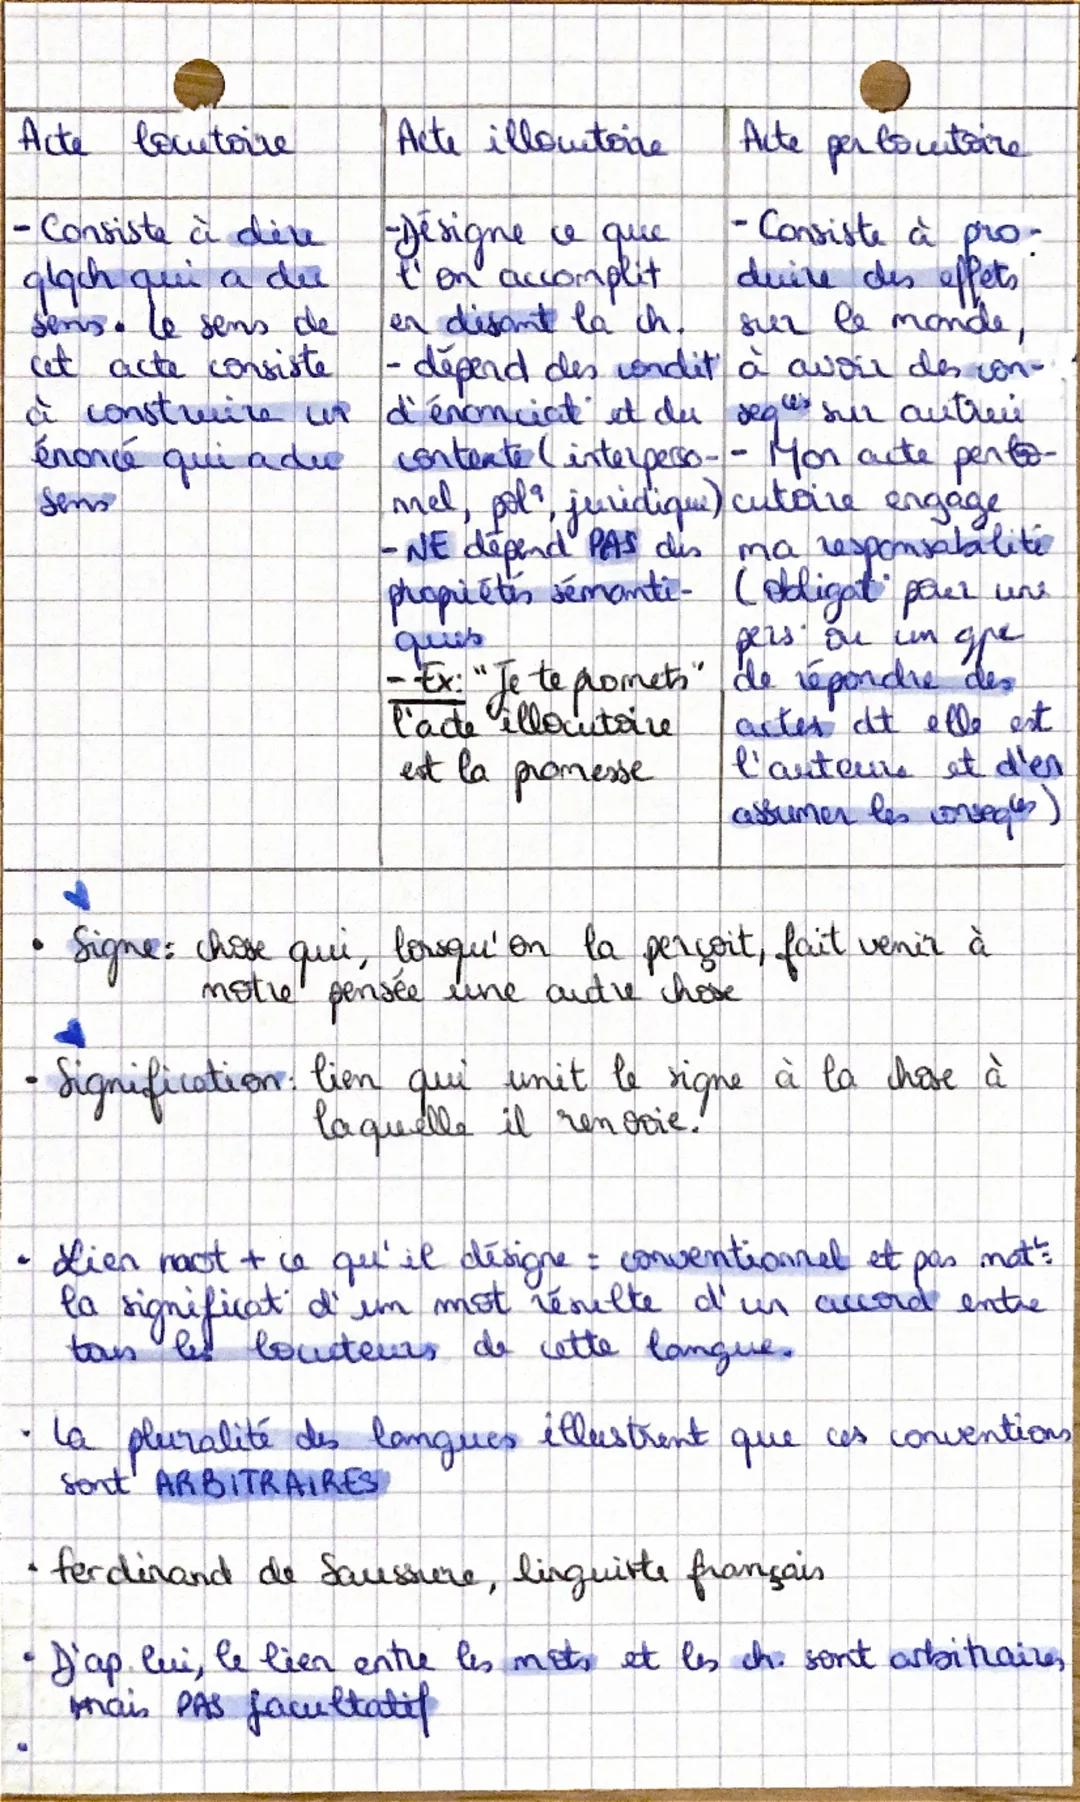 Acte locutoire
- Consiste à dire
qlqch qui a du
sens. Le sens de
cet acte consiste
à construire un
énoncé qui a du
sens
Acte illocutoire
- Désigne ce que
l'on accomplit
en disant la ch.
- dépend des condit°
d'énonciat° et du
contexte (interperso-
nnel, pol<sup>q</sup>, juridique)
- NE dépend PAS des
propriétés sémanti-
ques
- Ex: "Je te promets"
l'acte illocutoire
est la promesse
Acte perlocutoire
- Consiste à pro-
duire des effets
sur le monde,
à avoir des con-
seq<sup>ces</sup> sur autrui
- Mon acte perlo-
cutoire engage
ma responsabilité
(obligat° pour une
pers° ou un gpe
de répondre des
actes dt elle est
l'auteure et d'en
assumer les conseq<sup>ces</sup>)
• Signe: chose qui, lorsqu'on la perçoit, fait venir à
notre pensée une autre chose
• Signification: lien qui unit le signe à la chose à
laquelle il renvoie.
• Lien mot + ce qu'il désigne = conventionnel et pas nat<sup>l</sup>:
la significat° d'un mot résulte d'un accord entre
tous les locuteurs de cette langue.
• La pluralité des langues illustrent que ces conventions
sont ARBITRAIRES
• Ferdinand de Saussure, linguiste français
• D'ap. lui, le lien entre les mots et les ch. sont arbitraires,
mais PAS facultatif
•